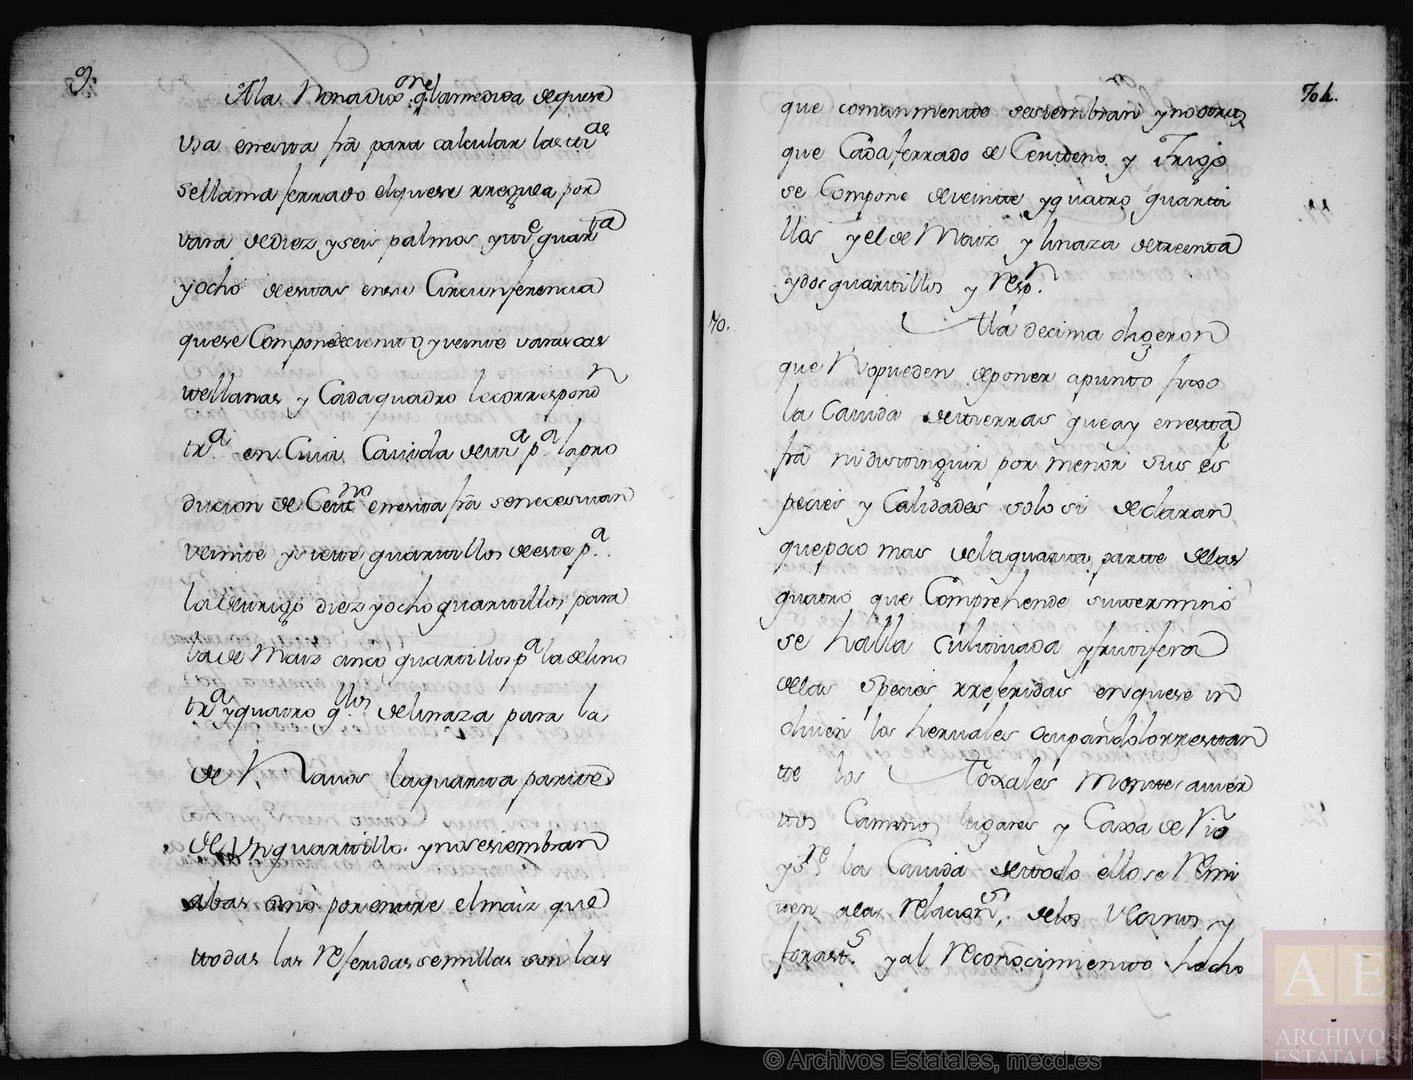 9.
A la Nona dixeron q.e la medida de que se
usa en esta frã para calcular las tr.as
se llama ferrado el que se rregula por
vara de diez y seis palmos y tr.e quarta
y ocho de estas en su Circunferencia
que se Compone de ciento y veinte varas cas
tellanas y Cada quadro le correspond
tr.a en Cuia Cavida de tr.a p.a la pro
ducion de Cent.no en esta frã se necesitan
veinte y siete quartillos de este p.a
la de trigo diez y ocho quartillos para
la de Maiz cinco quartillos p.a la de lino
tr.a y quatro q.llos de linaza para la
de Navos la quarta parte
de Un quartillo y no se siembran
abas sino por entre el maiz que
todas las referidas semillas son las
704.
que comunmente se siembran y no otras
que Cada ferrado de Centeno y Trigo
se Compone de veinte y quatro quarti
llos y el de Maiz y linaza de treinta
y dos quartillos y resp.n
10.
A la decima digeron
que No pueden deponer a punto fixo
la Cavida de tierras que ay en esta
frã ni distinguir por menor sus es
pecies y Calidades solo si declaran
que poco mas de la quarta parte de las
quatro que Comprehende su termino
se halla Cultivada y frutifera
de las Species rreferidas en que se in
cluien los herbales ocupando lo rrestan
te los Toxales Montes avier
tos Caminos lugares y Caxa de Rio
y s.re la Cavida de todo ello se remi
ten a las relacion.s de los Vecinos y
forast.s y al reconocimiento hecho
© Archivos Estatales, mecd.es
AE
ARCHIVOS
ESTATALES